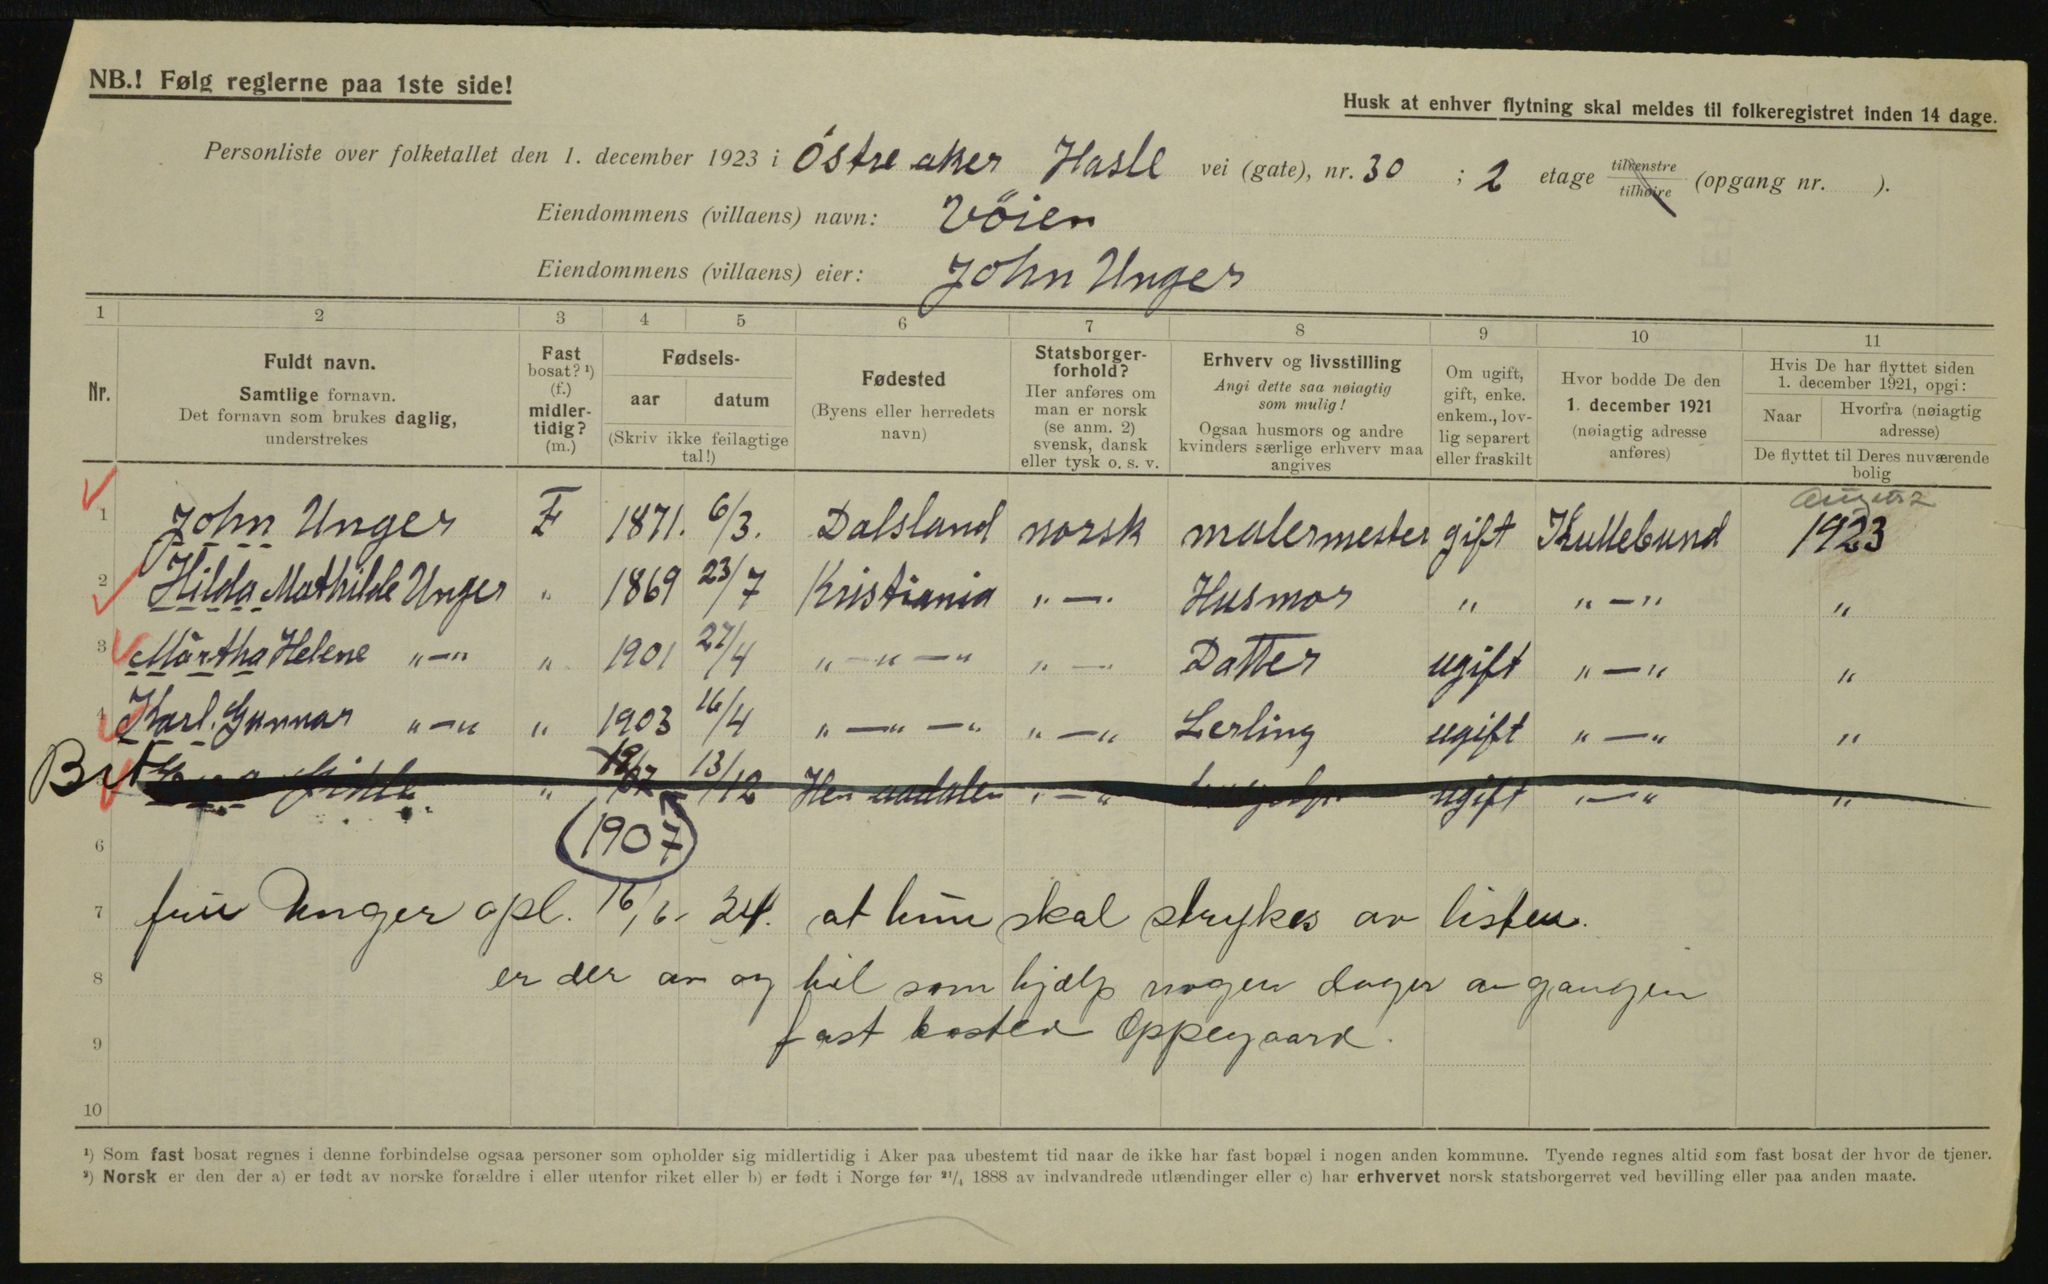 NB.! Følg reglerne paa 1ste side!
Husk at enhver flytning skal meldes til folkeregistret inden 14 dage.
Personliste over folketallet den 1. december 1923 i Östre aker Hasle vei (gate), nr. 30 ; 2 etage tilvenstre tilhøire (opgang nr. ).
Eiendommens (villaens) navn: Vöien
Eiendommens (villaens) eier: John Unger
1 2 3 4 5 6 7 8 9 10 11
Nr.
Fuldt navn.
Samtlige fornavn.
Det fornavn som brukes daglig,
understrekes
Fast
bosat? ¹)
(f.)
midler-
tidig?
(m.)
Fødsels-
aar datum
(Skriv ikke feilagtige
tal!)
Fødested
(Byens eller herredets
navn)
Statsborger-
forhold?
Her anføres om
man er norsk
(se anm. 2)
svensk, dansk
eller tysk o. s. v.
Erhverv og livsstilling
Angi dette saa nøiagtig
som mulig!
Ogsaa husmors og andre
kvinders særlige erhverv maa
angives
Om ugift,
gift, enke.
enkem., lov-
lig separert
eller fraskilt
Hvor bodde De den
1. december 1921
(nøiagtig adresse
anføres)
Hvis De har flyttet siden
1. december 1921, opgi:
Naar Hvorfra (nøiagtig
adresse)
De flyttet til Deres nuværende
bolig
August
1 John Unger F 1871. 6/3. Dalsland norsk malermester gift Kullebund 1923
2 Hilda Mathilde Unger " 1869 23/7 Kristiania " — " Husmor " " — " "
3 Märtha Helene " — " " 1901 27/4 " — " — " " — " Datter ugift " — " "
4 Karl. Gunnar " — " " 1903 16/4 " — " — " " — " Lerling ugift " — " "
5 " 13/12 aadalen " — " ugift " — " "
6 1907
7 fru Unger opl. 16/6- 24. at hun skal strykes av listen.
8 er der av og til som hjælp nogen dager av gangen
9 fast bosted Oppegaard.
10
¹) Som fast bosat regnes i denne forbindelse ogsaa personer som opholder sig midlertidig i Aker paa ubestemt tid naar de ikke har fast bopæl i nogen anden kommune. Tyende regnes altid som fast bosat der hvor de tjener.
²) Norsk er den der a) er født av norske forældre i eller utenfor riket eller b) er født i Norge før ²¹/₄ 1888 av indvandrede utlændinger eller c) har erhvervet norsk statsborgerret ved bevilling eller paa anden maate.